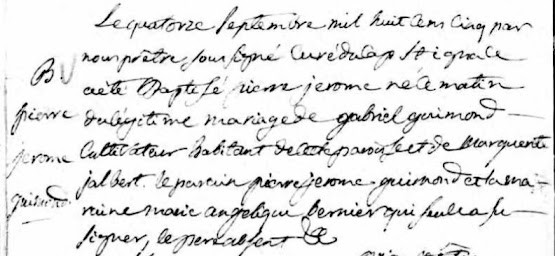 Le quatorze Septembre mil huit cens cinq par
nous prêtre, soussigné Curé du Cap St ignace
a été Baptisé pierre jerome né ce matin
du légitime mariage de gabriel guimond
Cultivateur habitant de cette paroisse et de Marguerite
jalbert. le parain pierre jerome guimond et la ma
raine marie angelique bernier qui seule a su
signer, le pere absent &
B
pierre
jerome
guimond